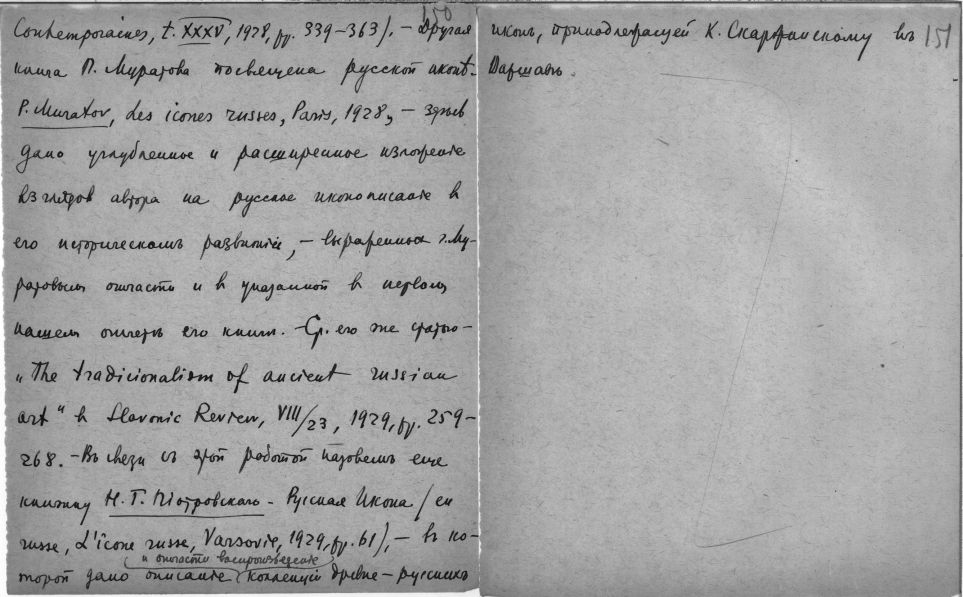 150
Contemporaines, t. XXXV, 1928, pp. 339–363). – Другая
книга П. Муратова посвещена русской иконѣ –
P. Muratov, Les icones russes, Paris, 1928, – здѣсь
дано углубленное и расширенное изложение
взглядов автора на русское иконописание в
его историческомъ развитіи, – выраженных г. Му-
ратовым отчасти и в указанной в первом
нашем отчетѣ его книги. – Ср. его же статью –
„The tradicionalism of ancient russian
art" в Slavonic Review, VIII/23, 1929, pp. 259–
268. – Въ связи съ этой работой назовемъ еще
книжку Н. Г. Піотровскаго – Русская Икона /en
russe, L'icone russe, Varsovie, 1929, pp. 61), – в ко-
и отчасти воспроизведение
торой дано описание коллекціи древне-русскихъ
151
икон, принадлежащей К. Скаржинскому въ
Варшавѣ.